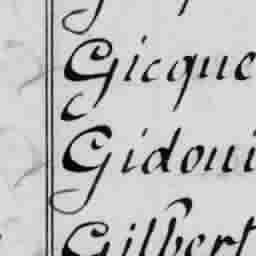 Gicque
Gidoui
Gilbert